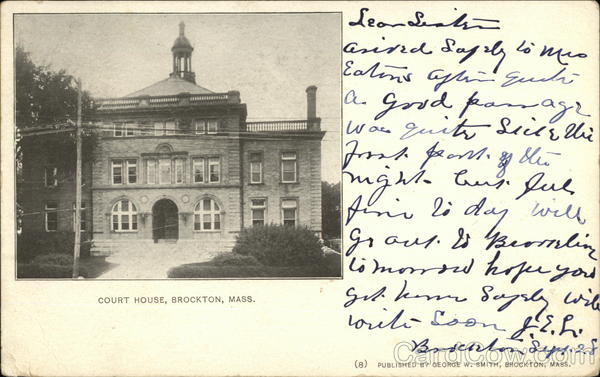 Dear Sister
arived Safely to Mrs
Eatons after quite
a good passage
was quite Sick the
first part of the
night but feel
fine to day will
go out to Brookline
to morrow hope you
got home Safely will
write Soon J.E.L.
Brockton, Sept 28
COURT HOUSE, BROCKTON, MASS.
(8) PUBLISHED BY GEORGE W. SMITH, BROCKTON, MASS.
CardCow.com